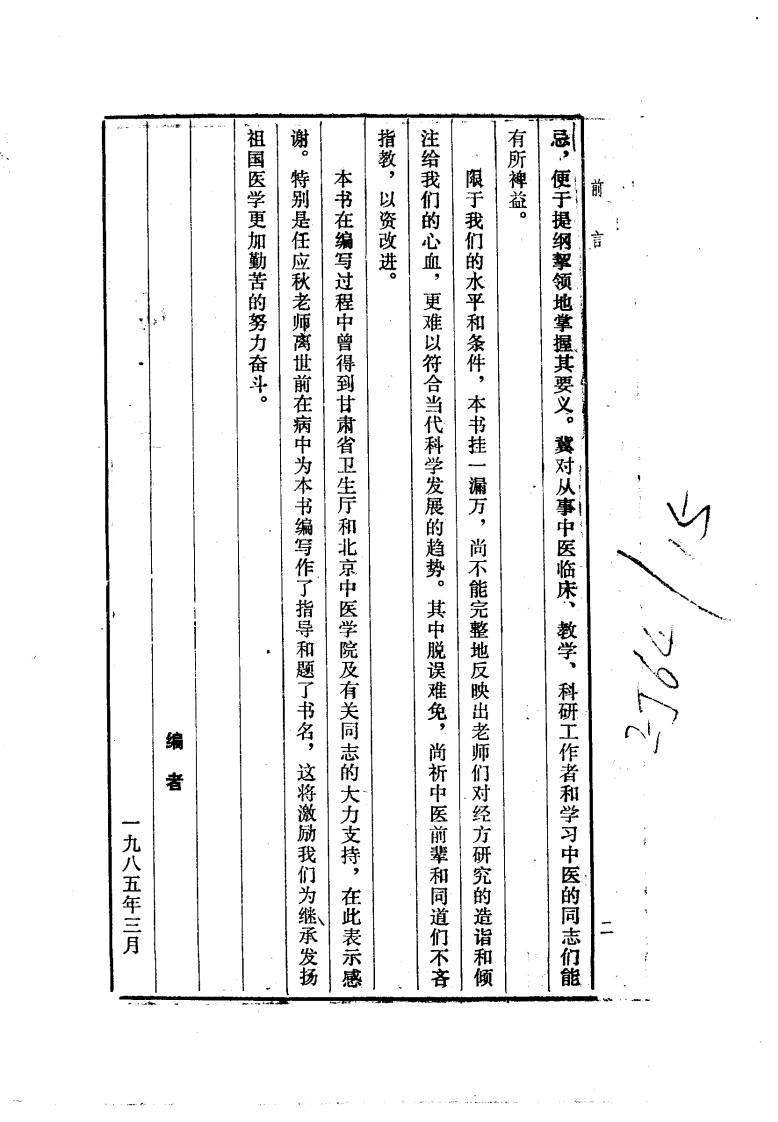 前言
二
忌，便于提纲挈领地掌握其要义。冀对从事中医临床、教学、科研工作者和学习中医的同志们能
有所裨益。
限于我们的水平和条件，本书挂一漏万，尚不能完整地反映出老师们对经方研究的造诣和倾
注给我们的心血，更难以符合当代科学发展的趋势。其中脱误难免，尚祈中医前辈和同道们不吝
指教，以资改进。
本书在编写过程中曾得到甘肃省卫生厅和北京中医学院及有关同志的大力支持，在此表示感
谢。特别是任应秋老师离世前在病中为本书编写作了指导和题了书名，这将激励我们为继承发扬
祖国医学更加勤苦的努力奋斗。
编者
一九八五年三月